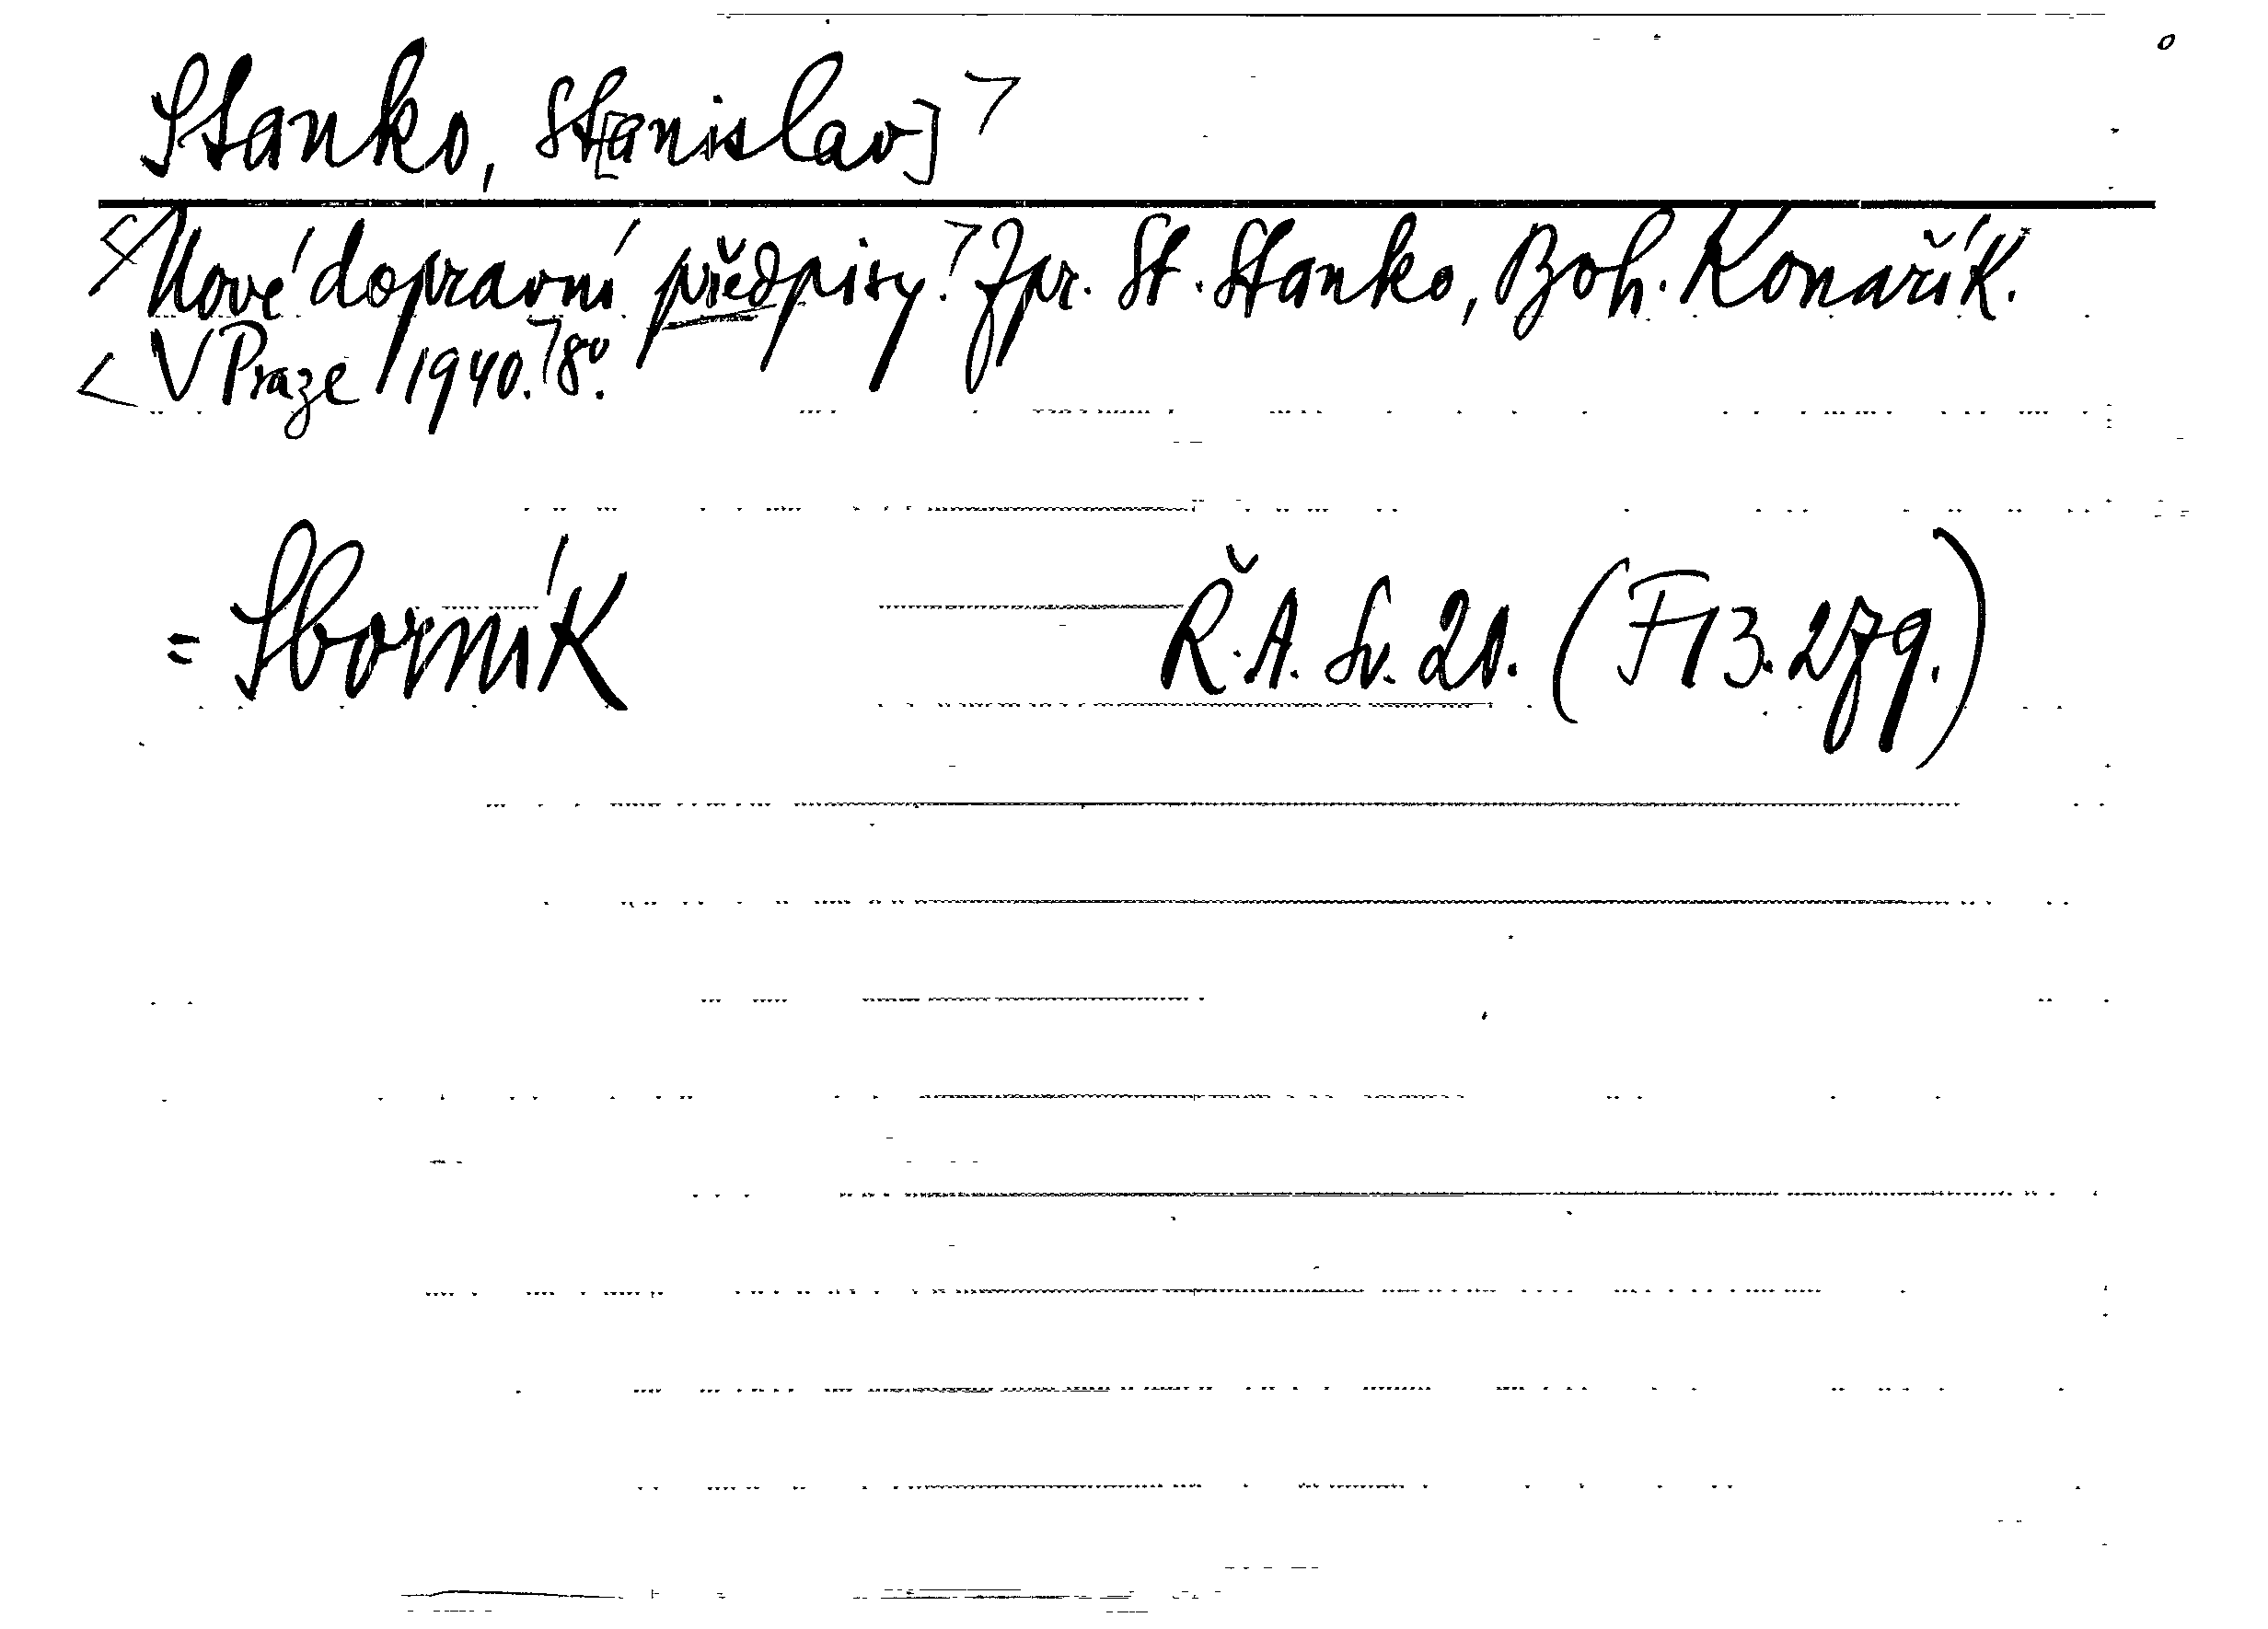 Stanko, St[anislav]
Nové dopravní předpisy. Zpr. St. Stanko, Boh. Konařík.
V Praze 1940. 8°.
= Sborník Ř. A. Sv. 20. (F 13.279.)